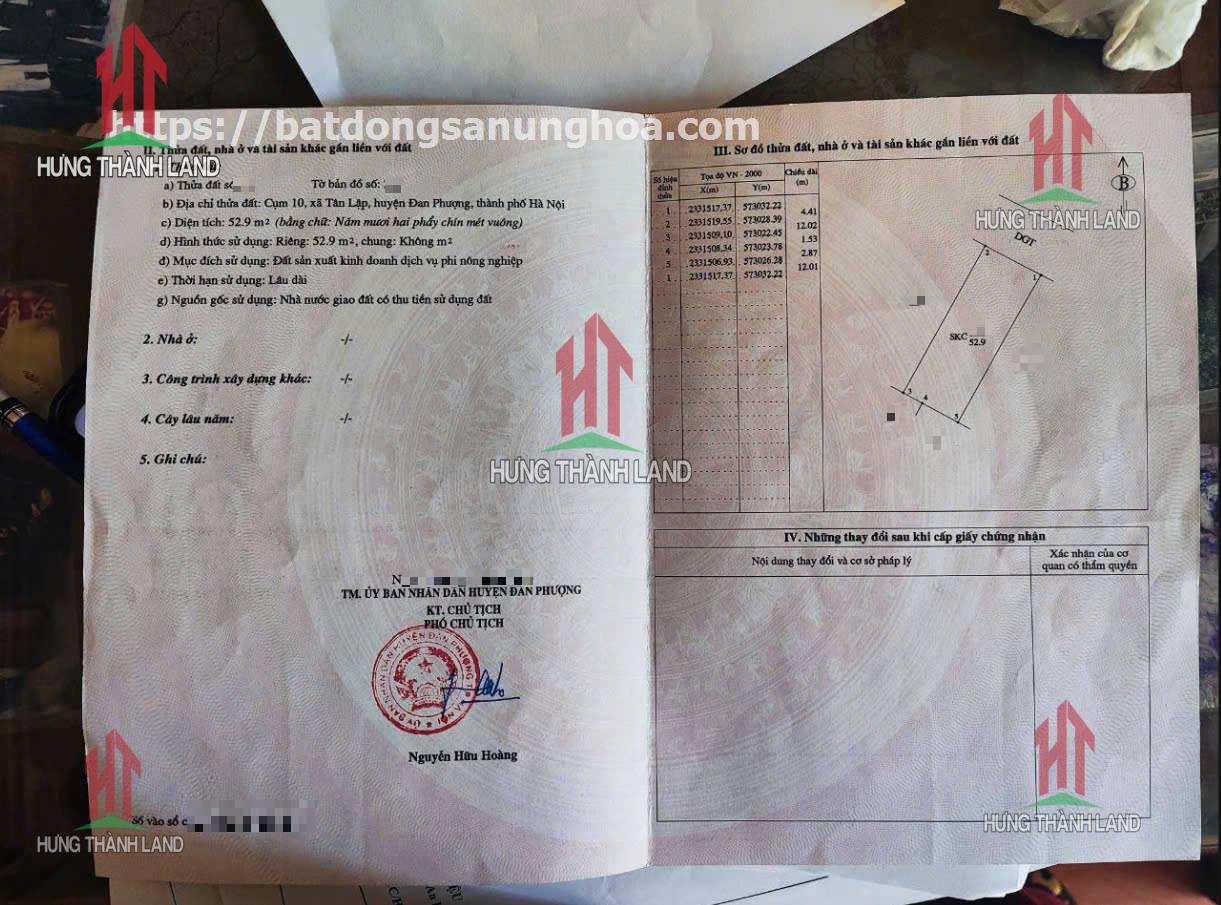 https://batdongsanunghoa.com
HƯNG THÀNH LAND
II. Thửa đất, nhà ở và tài sản khác gắn liền với đất
a) Thửa đất số Tờ bản đồ số:
b) Địa chỉ thửa đất: Cụm 10, xã Tân Lập, huyện Đan Phượng, thành phố Hà Nội
c) Diện tích: 52.9 m² (bằng chữ: Năm mươi hai phẩy chín mét vuông)
d) Hình thức sử dụng: Riêng: 52.9 m², chung: Không m²
đ) Mục đích sử dụng: Đất sản xuất kinh doanh dịch vụ phi nông nghiệp
e) Thời hạn sử dụng: Lâu dài
g) Nguồn gốc sử dụng: Nhà nước giao đất có thu tiền sử dụng đất
2. Nhà ở: -/-
3. Công trình xây dựng khác: -/-
4. Cây lâu năm: -/-
5. Ghi chú:
HƯNG THÀNH LAND
TM. ỦY BAN NHÂN DÂN HUYỆN ĐAN PHƯỢNG
KT. CHỦ TỊCH
PHÓ CHỦ TỊCH
Nguyễn Hữu Hoàng
Số vào sổ c
HƯNG THÀNH LAND
III. Sơ đồ thửa đất, nhà ở và tài sản khác gắn liền với đất
Số hiệu đỉnh thửa Tọa độ VN - 2000 Chiều dài (m)
X(m) Y(m)
1 2331517.37 573032.22
4.41
2 2331519.55 573028.39
12.02
3 2331509.10 573022.45
1.53
4 2331508.34 573023.78
2.87
5 2331506.93 573026.28
12.01
1 2331517.37 573032.22
B
HƯNG THÀNH LAND
DGT
2
1
SKC 52.9
3
4
5
IV. Những thay đổi sau khi cấp giấy chứng nhận
Nội dung thay đổi và cơ sở pháp lý
Xác nhận của cơ
quan có thẩm quyền
HƯNG THÀNH LAND